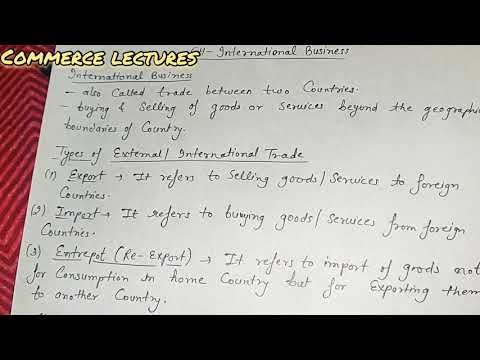 COMMERCE LECTURES
4- International Business
International Business
- also Called trade between two Countries.
- buying & Selling of goods or services beyond the geographic
boundaries of Country.
Types of External/International Trade
(1) Export → It refers to Selling goods/Services to foreign
Countries.
(2) Import → It refers to buying goods/Services from foreign
Countries.
(3) Entrepot (Re-Export) → It refers to import of goods not
for Consumption in home Country but for Exporting them
to another Country.